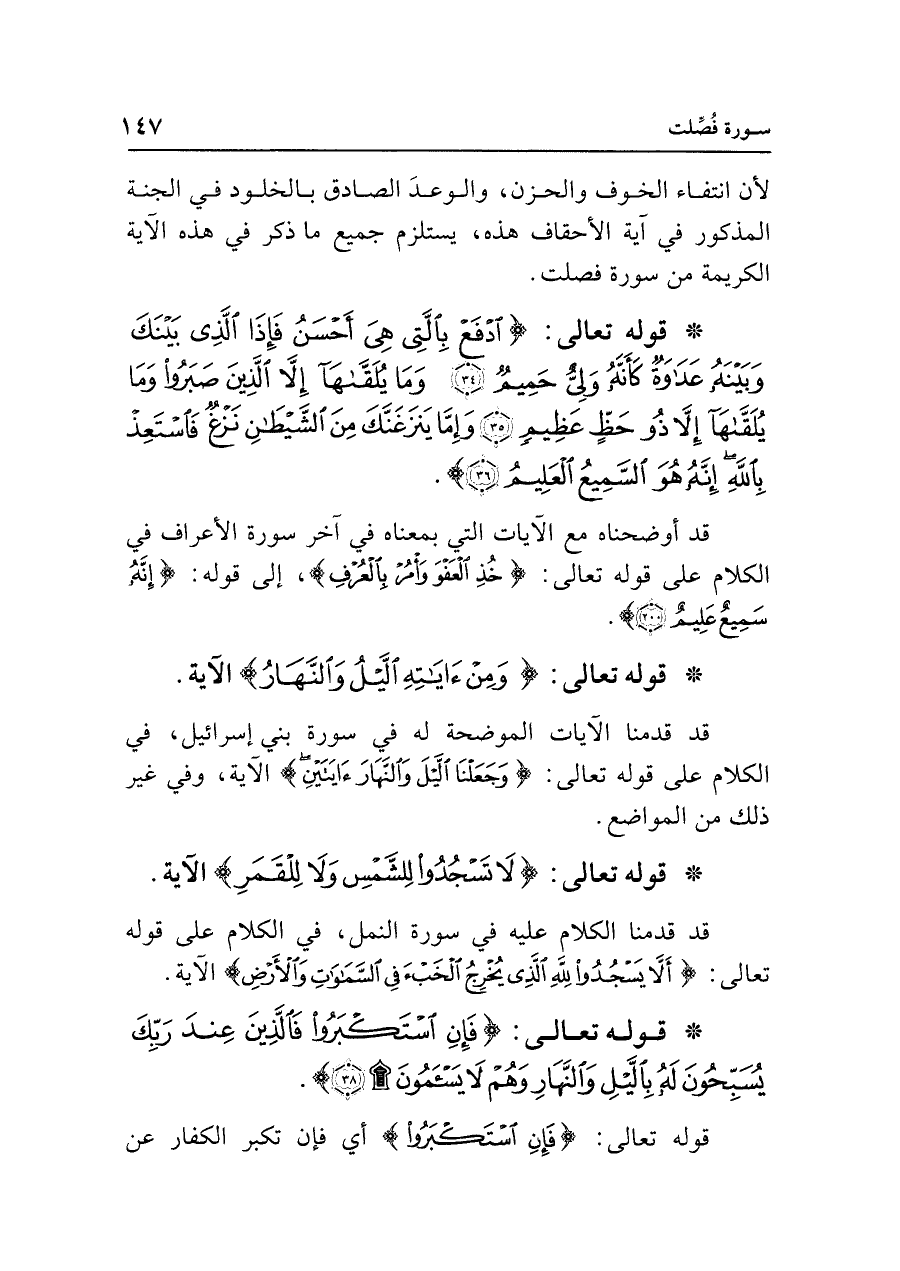 سورة فُصِّلت ١٤٧
لأن انتفاء الخوف والحزن، والوعدَ الصادق بالخلود في الجنة
المذكور في آية الأحقاف هذه، يستلزم جميع ما ذكر في هذه الآية
الكريمة من سورة فصلت.
* قوله تعالى: ﴿ ٱدۡفَعۡ بِٱلَّتِي هِيَ أَحۡسَنُ فَإِذَا ٱلَّذِي بَيۡنَكَ
وَبَيۡنَهُۥ عَدَٰوَةٞ كَأَنَّهُۥ وَلِيٌّ حَمِيمٞ ﴿٣٤﴾ وَمَا يُلَقَّىٰهَآ إِلَّا ٱلَّذِينَ صَبَرُواْ وَمَا
يُلَقَّىٰهَآ إِلَّا ذُو حَظٍّ عَظِيمٖ ﴿٣٥﴾ وَإِمَّا يَنزَغَنَّكَ مِنَ ٱلشَّيۡطَٰنِ نَزۡغٞ فَٱسۡتَعِذۡ
بِٱللَّهِۖ إِنَّهُۥ هُوَ ٱلسَّمِيعُ ٱلۡعَلِيمُ ﴿٣٦﴾ ﴾.
قد أوضحناه مع الآيات التي بمعناه في آخر سورة الأعراف في
الكلام على قوله تعالى: ﴿ خُذِ ٱلۡعَفۡوَ وَأۡمُرۡ بِٱلۡعُرۡفِ ﴾، إلى قوله: ﴿ إِنَّهُۥ
سَمِيعٌ عَلِيمٌ ﴿٢٠٠﴾ ﴾.
* قوله تعالى: ﴿ وَمِنۡ ءَايَٰتِهِ ٱلَّيۡلُ وَٱلنَّهَارُ ﴾ الآية.
قد قدمنا الآيات الموضحة له في سورة بني إسرائيل، في
الكلام على قوله تعالى: ﴿ وَجَعَلۡنَا ٱلَّيۡلَ وَٱلنَّهَارَ ءَايَتَيۡنِۖ ﴾ الآية، وفي غير
ذلك من المواضع.
* قوله تعالى: ﴿ لَا تَسۡجُدُواْ لِلشَّمۡسِ وَلَا لِلۡقَمَرِ ﴾ الآية.
قد قدمنا الكلام عليه في سورة النمل، في الكلام على قوله
تعالى: ﴿ أَلَّا يَسۡجُدُواْ لِلَّهِ ٱلَّذِي يُخۡرِجُ ٱلۡخَبۡءَ فِي ٱلسَّمَٰوَٰتِ وَٱلۡأَرۡضِ ﴾ الآية.
* قوله تعالى: ﴿ فَإِنِ ٱسۡتَكۡبَرُواْ فَٱلَّذِينَ عِندَ رَبِّكَ
يُسَبِّحُونَ لَهُۥ بِٱلَّيۡلِ وَٱلنَّهَارِ وَهُمۡ لَا يَسۡـَٔمُونَ ۩ ﴿٣٨﴾ ﴾.
قوله تعالى: ﴿ فَإِنِ ٱسۡتَكۡبَرُواْ ﴾ أي فإن تكبر الكفار عن